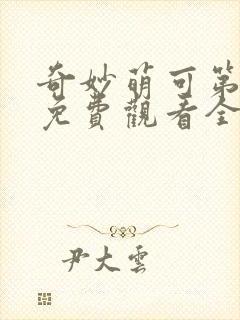 奇妙萌可第
免費觀看全
尹大雲